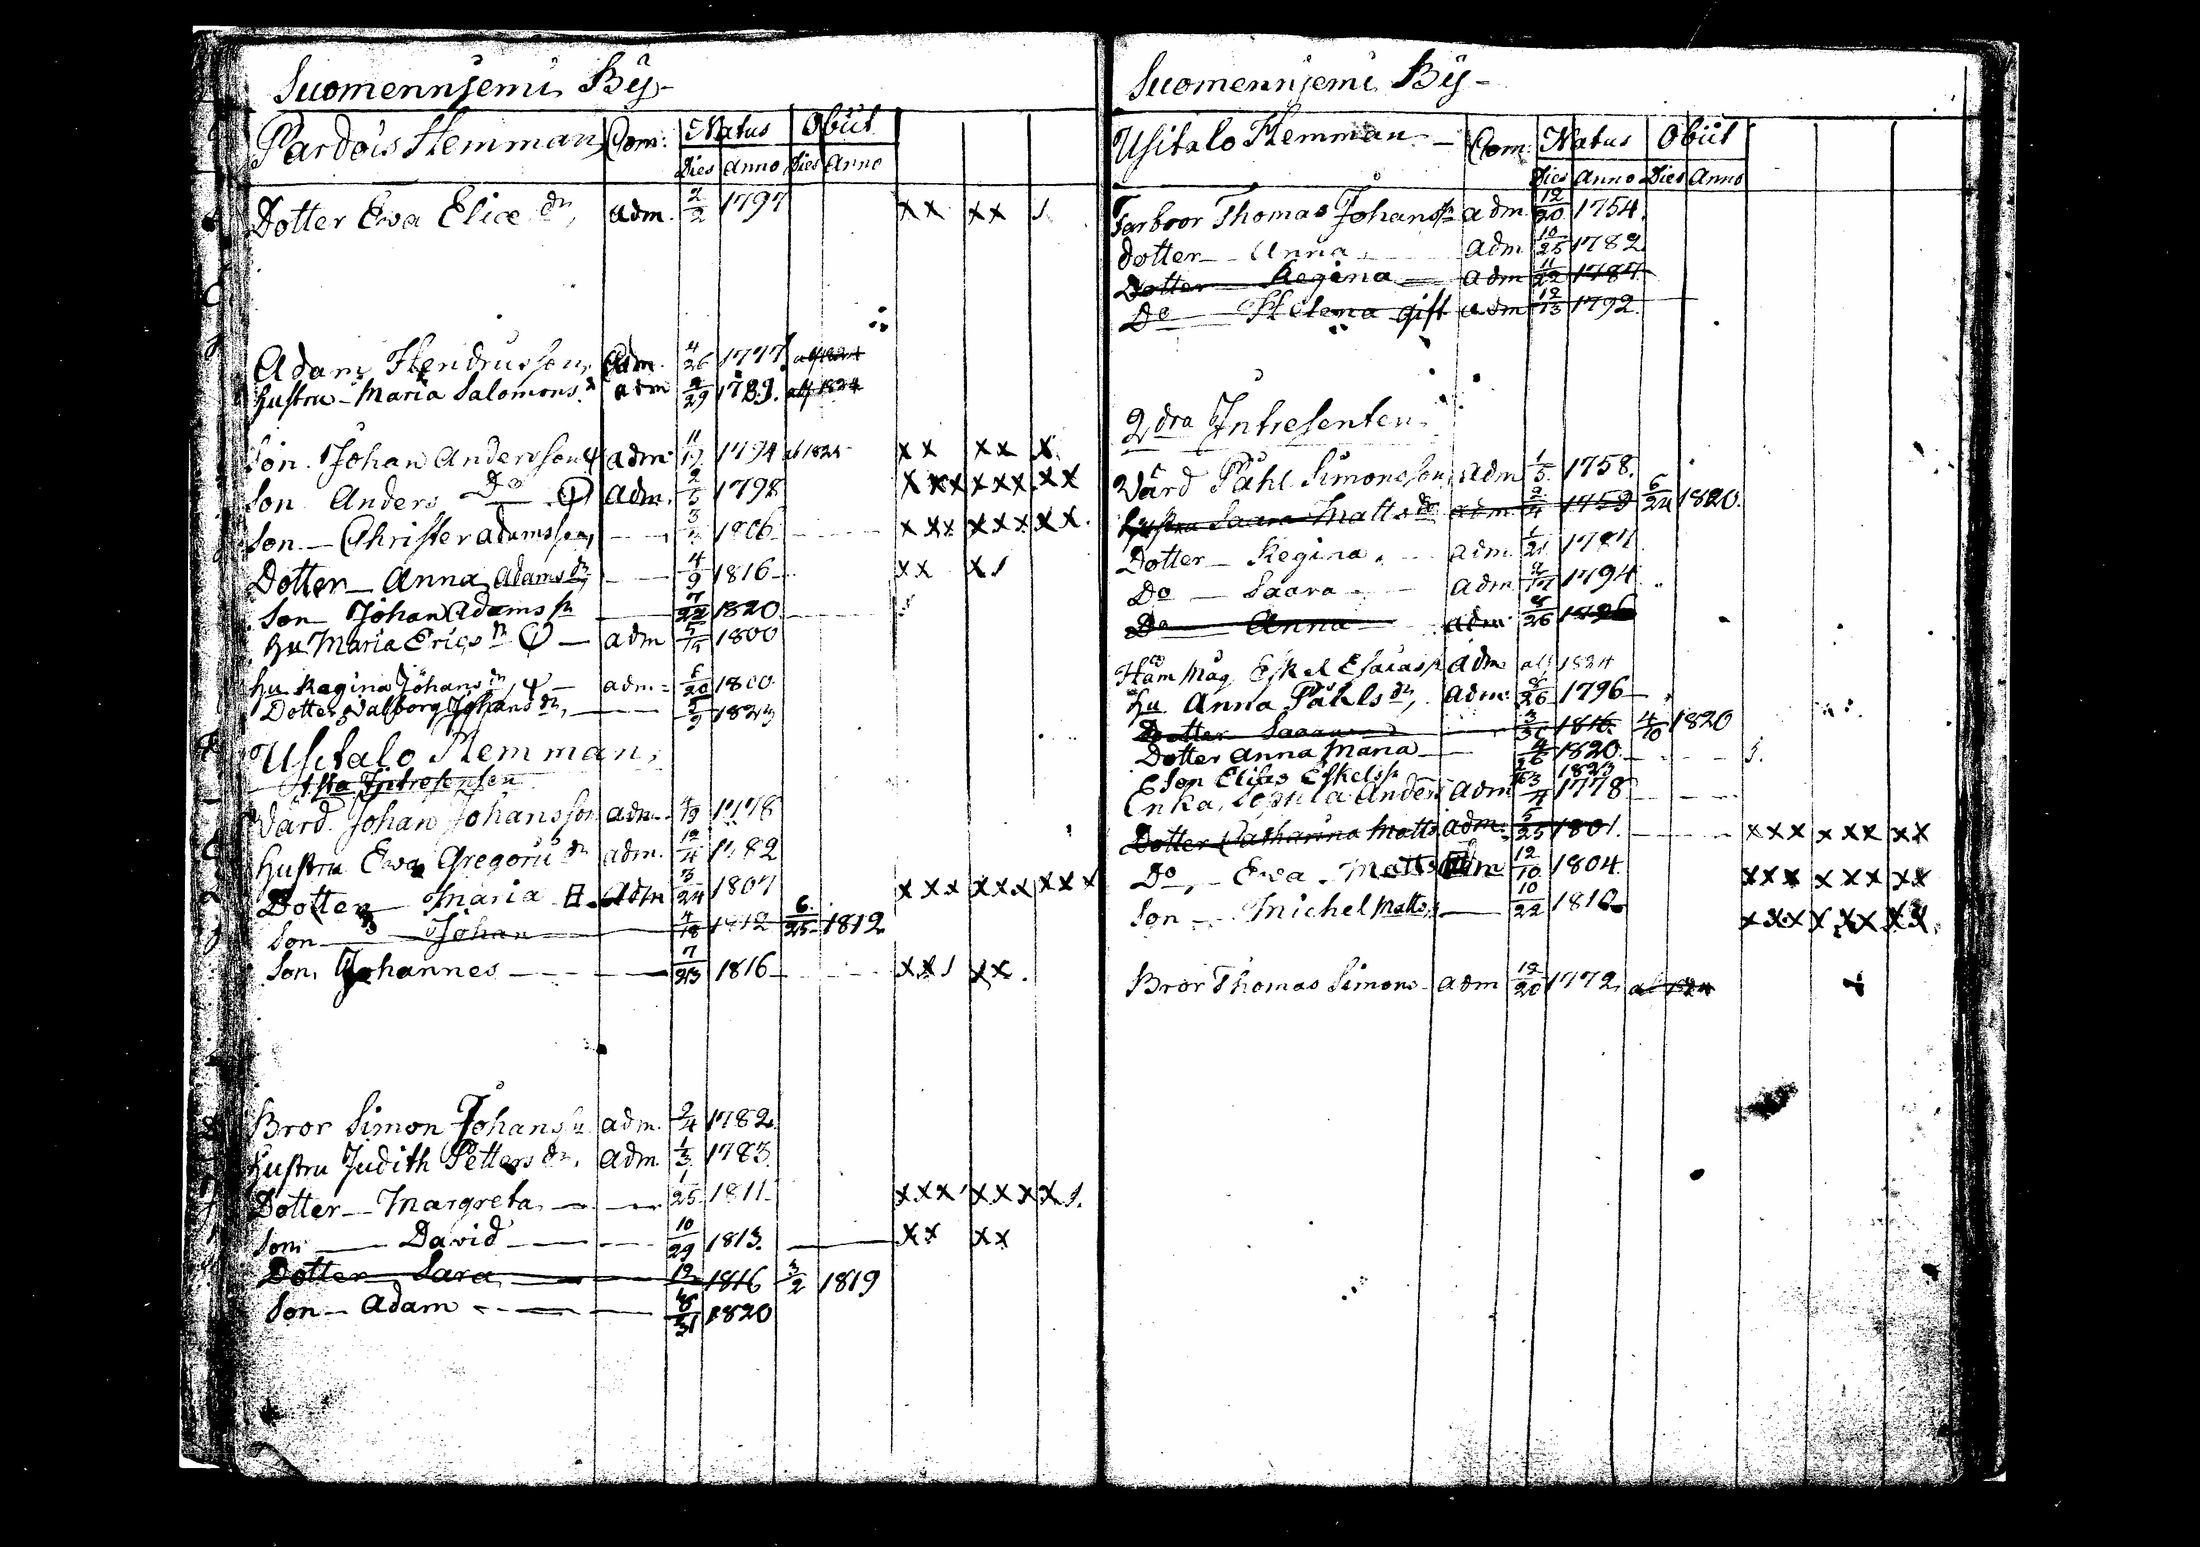 Suomennjemi By
Pardois Hemman Com: Natus Obiit
Dies Anno Dies Anno
Dotter Ewa Elice dr, adm. 2/2 1797 xx xx
Adam Hendrisson, adm. 4/26 1777
Hustru Maria Salomons. adm 29 1789.
Son. Johan Andersson adm. 11 1794 xx xx x
Son Anders Do adm. 2 1798 xxx xxx xx
Son Christer Adamsson 3 1806 xxx xxx xx.
Dotter Anna Adams dr 4/9 1816 xx x
Son Johan Adams 7/22 1820
Hu Maria Erics dr adm 5 1800
Hu. Regina Johans dr adm 20 1800
Dotter Valborg Johans dr, 9 1823
Usitalo Hemman,
1sta Intresenten
Värd. Johan Johansson adm. 19 1778
Hustru Ewa Gregorii dr adm. 12/4 1782
Dotter Maria adm 3/24 1807 xxx xxx xxx
Son Johan 4/18 1812 6/25 1812
Son, Johannes 7/23 1816 xx xx.
Bror Simon Johans adm. 2/4 1782
Hustru Judith Petters dr. adm. 1/3 1783
Dotter Margreta 1/25 1811 xxx xxx x
Son David 10/29 1813. xx xx
Dotter Sara 12 1816 3/2 1819
Son Adam 8/31 1820
Suomennjemi By
Usitalo Hemman Com: Natus Obiit
Dies Anno Dies Anno
Farbror Thomas Johans adm 12/20 1754.
Dotter Anna adm 10/25 1782
Dotter Regina adm 11/22 1787
Do Helena gift adm 12/13 1792
2dra Intresenten
Värd Påhl Simonsson adm 1/5 1758.
Hustru Saara Matts dr adm 2/4 1759 6/24 1820.
Dotter Regina. adm. 1/21 1787
Do Saara adm 1794
Do Anna adm 8/26 1796
Håm Måg Eskel Esaias adm 1824
Hu Anna Påhls dr, adm: 8/26 1796
Dotter Saara 3 1816. 4/10 1820
Dotter Anna Maria 4/26 1820.
Son Elias Eskels 1823
Enka, Anders adm 3/4 1778
Dotter Catharina Matts adm. 5/25 1801. xxx xxx xx
Do, Ewa Matts adm 12/10 1804. xxx xxx xx
Son Michel Matts 10/22 1810 xxx xxx xx.
Bror Thomas Simons adm 12/20 1772,